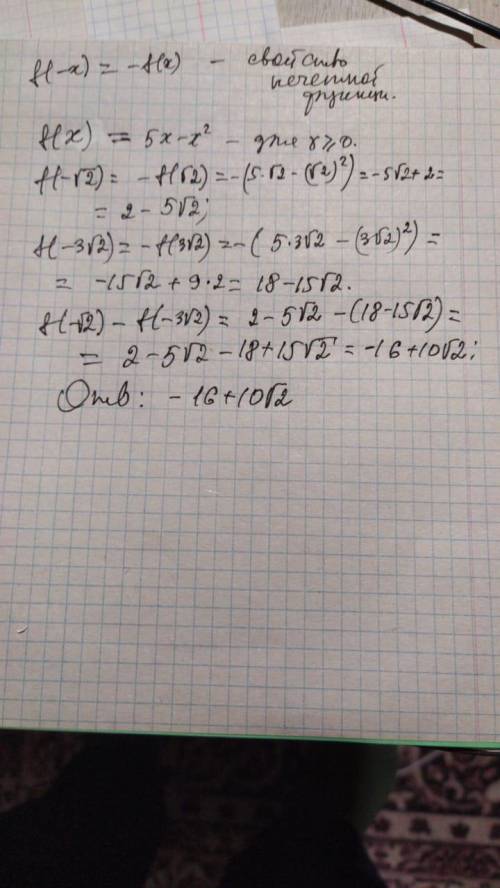 f(-x) = -f(x) - свойство
нечетной
функции.
f(x) = 5x-x² - для x≥0.
f(-√2) = -f(√2) = -(5·√2 - (√2)²) = -5√2+2=
= 2-5√2;
f(-3√2) = -f(3√2) = -( 5·3√2 - (3√2)²) =
= -15√2 + 9·2 = 18-15√2.
f(-√2) - f(-3√2) = 2-5√2 -(18-15√2) =
= 2-5√2 -18+15√2 = -16+10√2;
Отв: -16+10√2